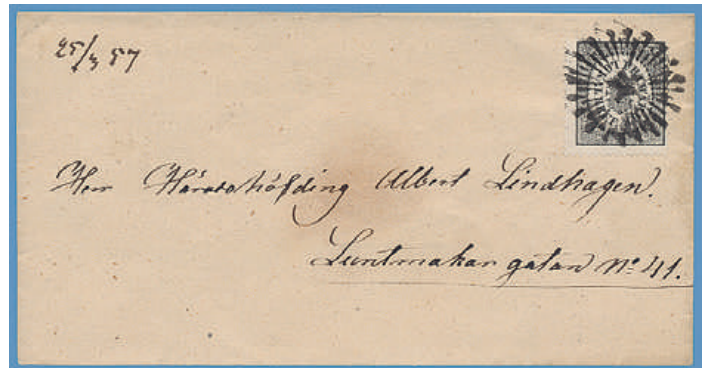 25/3 57
Herr Häradshöfding Albert Lindhagen.
Luntmakar gatan No 41.